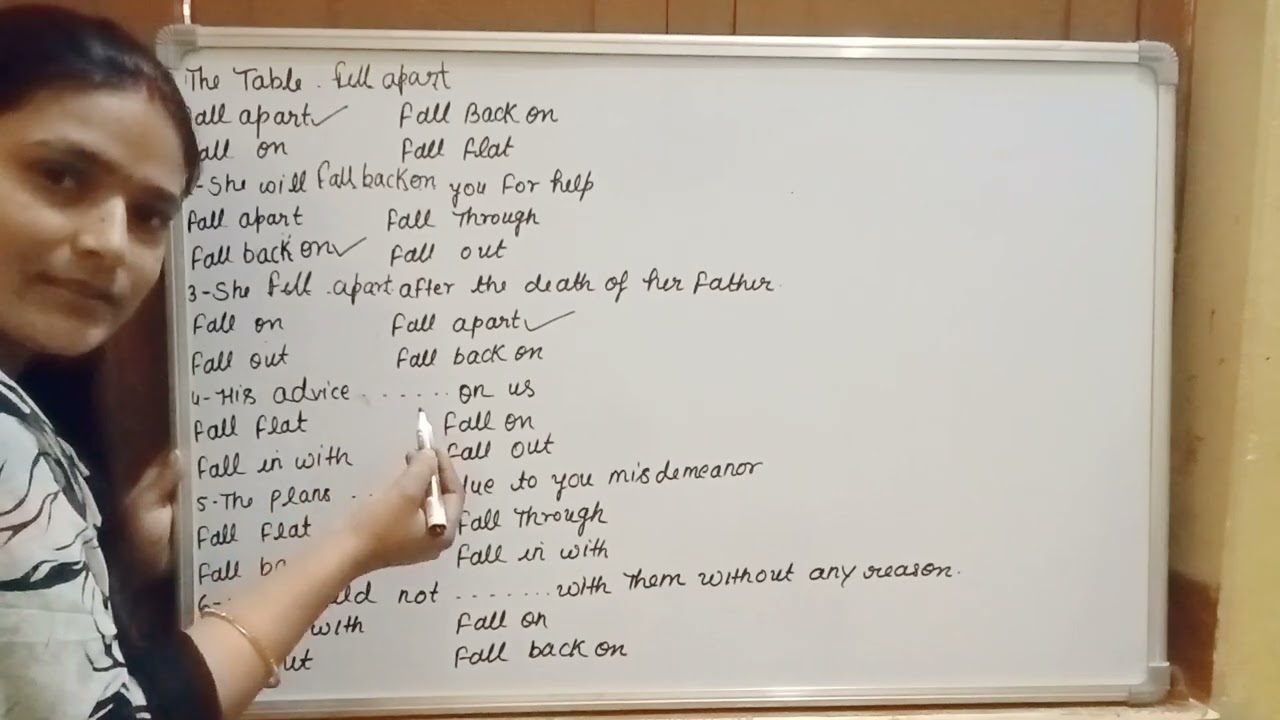 The Table . fell apart
all apart✓ Fall Back on
all on Fall flat
-She will fall back on you for help
fall apart fall Through
fall back on✓ fall out
3-She fell .apart.after the death of her father.
fall on fall apart✓
fall out fall back on
4-His advice ...... on us
fall flat fall on
fall in with fall out
5-The plans .. due to you misdemeanor
fall flat fall Through
fall fall in with
6- not ....... with them without any reason.
with fall on
fall back on